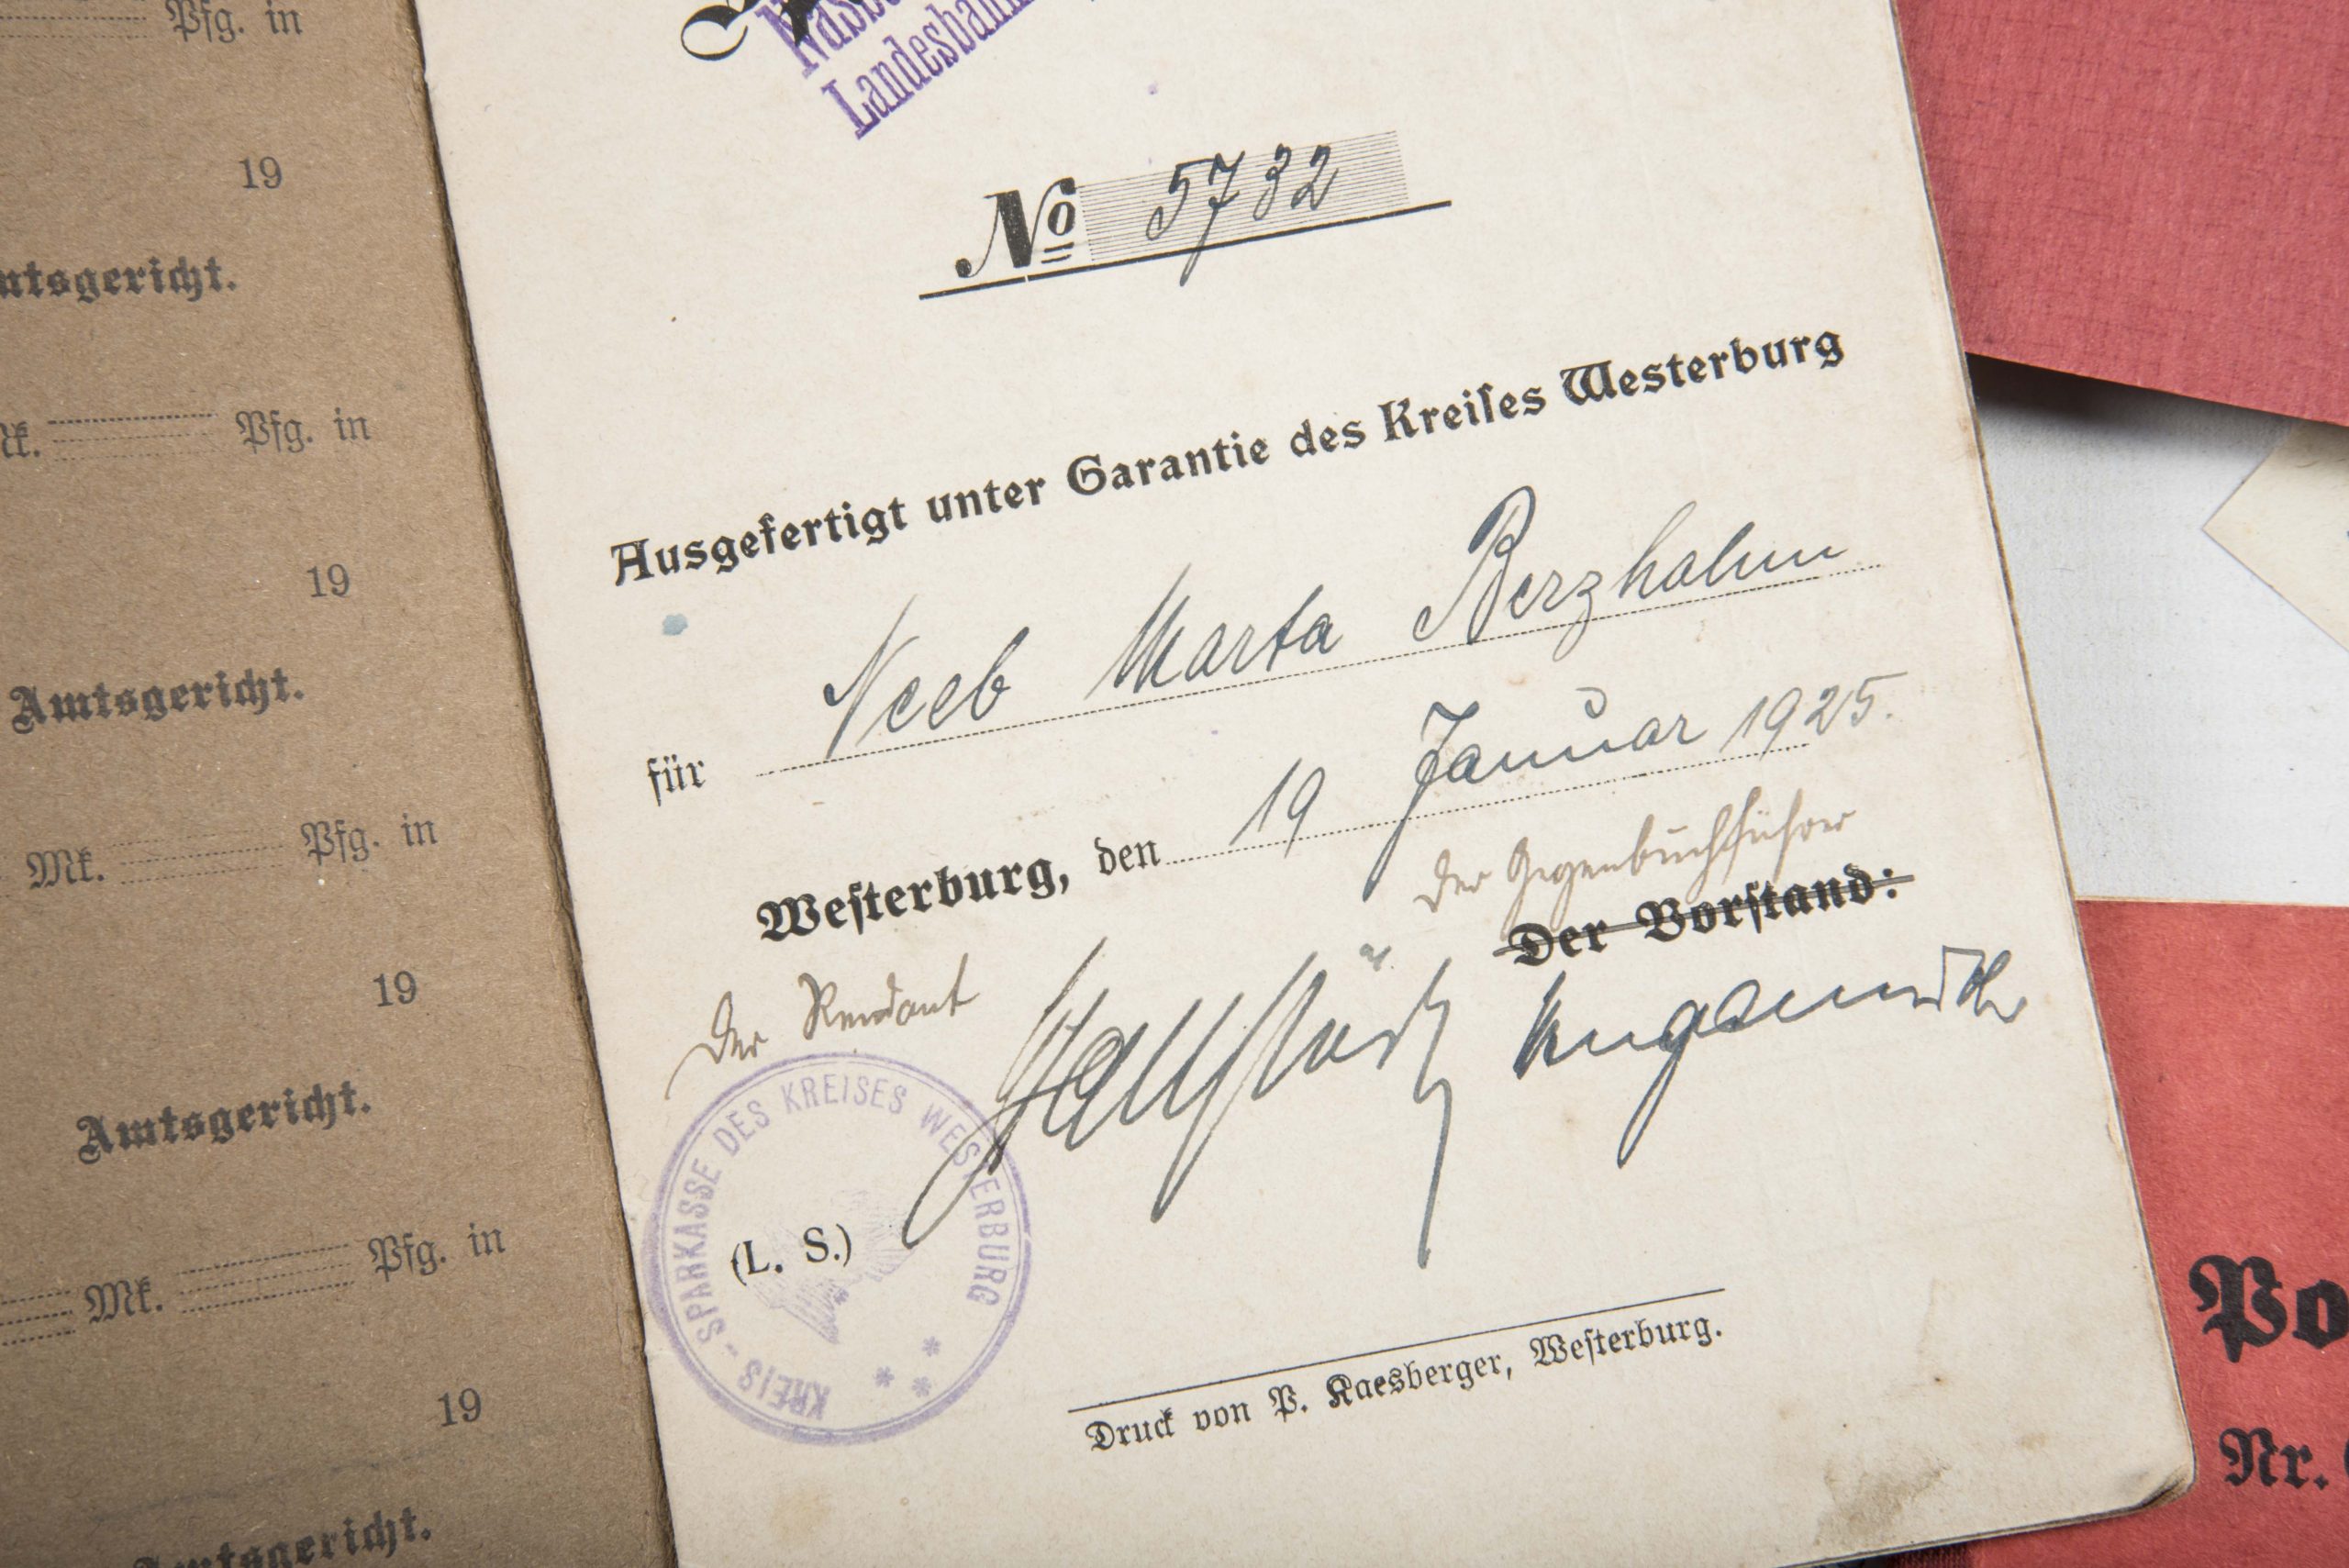 Pfg. in
19
Amtsgericht.
Mk. Pfg. in
19
Amtsgericht.
Mk. Pfg. in
19
Amtsgericht.
Mk. Pfg. in
19
Amtsgericht.
Landesbank
No 5732
Ausgefertigt unter Garantie des Kreiſes Westerburg
für Neeb Marta Berzhahn
Weſterburg, den 19 Januar 1925.
Der Gegenbuchführer
Der Vorſtand:
Der Rendant
KREIS-SPARKASSE DES KREISES WESTERBURG
(L. S.)
Druck von P. Kaesberger, Weſterburg.
Po
Nr.